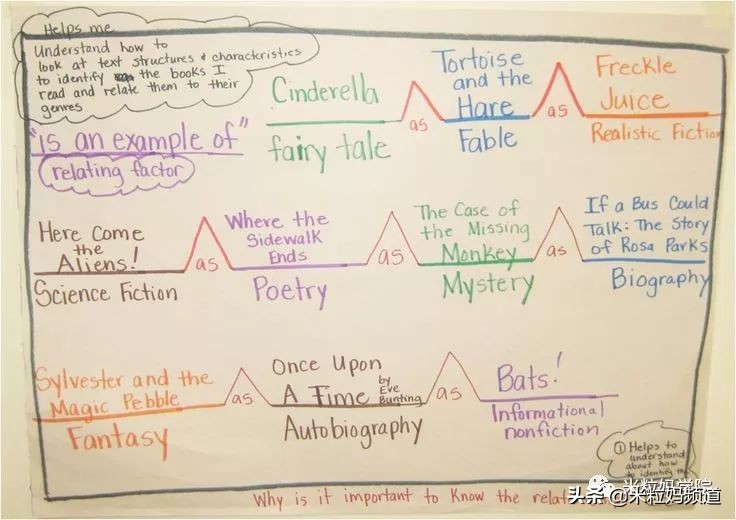 Helps me
Understand how to
look at text structures & characteristics
to identify the books I
read and relate them to their
genres
"is an example of"
relating factor
Cinderella
fairy tale
as
Tortoise
and the
Hare
Fable
as
Freckle
Juice
Realistic Fiction
Here Come
the
Aliens!
Science Fiction
as
Where the
Sidewalk
Ends
Poetry
as
The Case of
the Missing
Monkey
Mystery
as
If a Bus Could
Talk: The Story
of Rosa Parks
Biography
Sylvester and the
Magic Pebble
Fantasy
as
Once Upon
A Time by Eve Bunting
Autobiography
as
Bats!
Informational
nonfiction
① Helps to
understand
about how
to identify the
Why is it important to know the
米粒妈学院
头条 @米粒妈频道